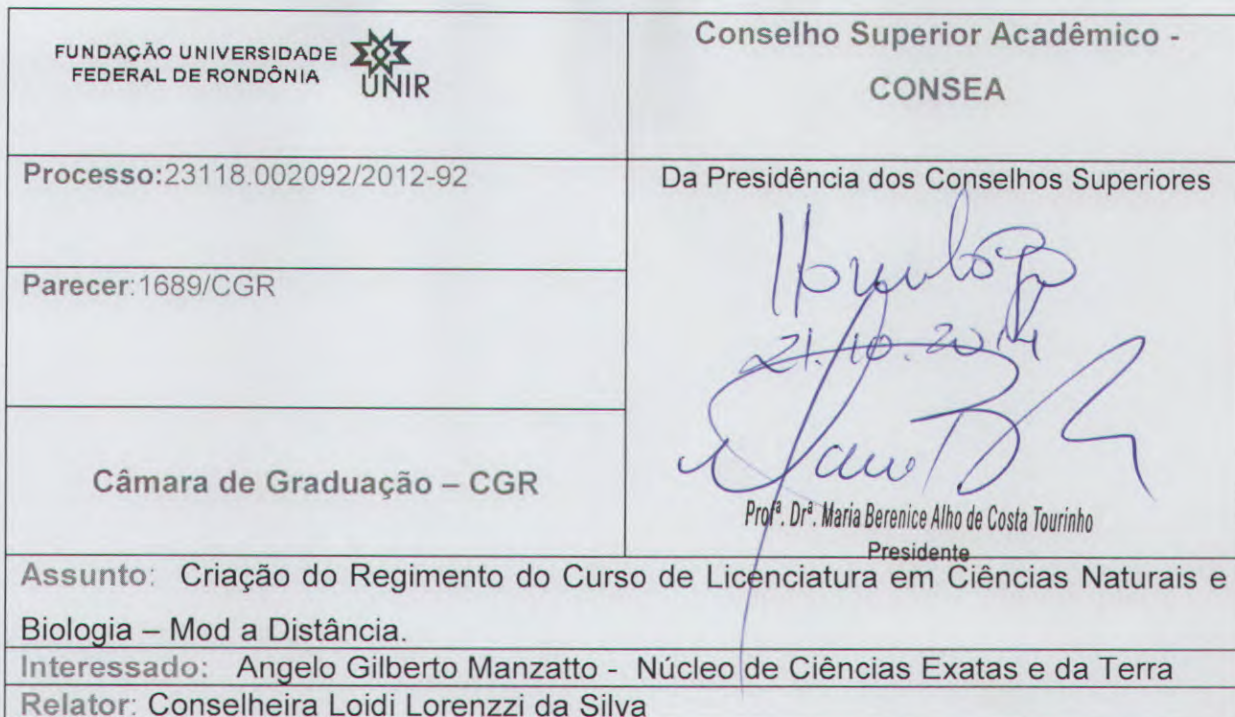 FUNDAÇÃO UNIVERSIDADE
FEDERAL DE RONDÔNIA
UNIR
Conselho Superior Acadêmico -
CONSEA
Processo:23118.002092/2012-92
Parecer:1689/CGR
Câmara de Graduação – CGR
Da Presidência dos Conselhos Superiores
Homologo
21.10.2014
Profª. Drª. Maria Berenice Alho de Costa Tourinho
Presidente
Assunto: Criação do Regimento do Curso de Licenciatura em Ciências Naturais e
Biologia – Mod a Distância.
Interessado: Angelo Gilberto Manzatto - Núcleo de Ciências Exatas e da Terra
Relator: Conselheira Loidi Lorenzzi da Silva